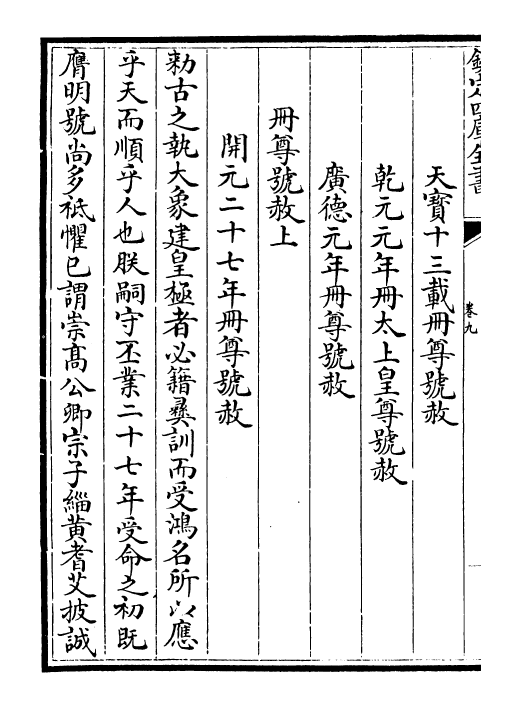 欽定四庫全書
卷九
天寳十三載冊尊號赦
乾元元年冊太上皇尊號赦
廣德元年冊尊號赦
冊尊號赦上
開元二十七年冊尊號赦
勅古之執大象建皇極者必籍彛訓而受鴻名所以應
乎天而順乎人也朕嗣守丕業二十七年受命之初既
膺明號尚多祗懼已謂崇髙公卿宗子緇黄耆艾披誠